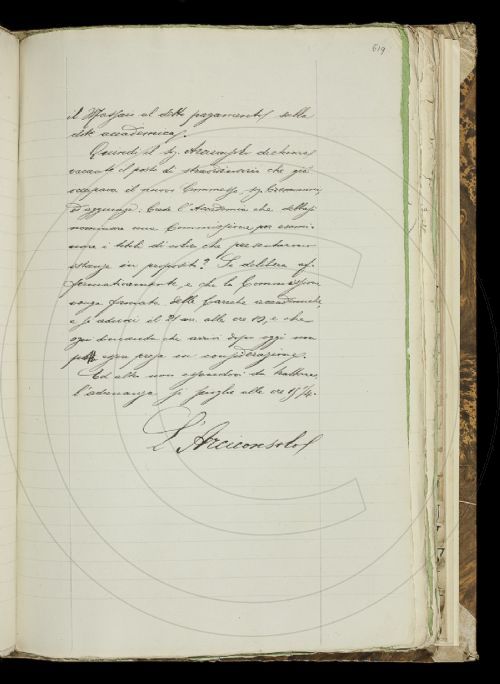 619
il Massaro al detto pagamento sulla
dote accademica.
Quindi il Sig. Arciconsolo dichiara
vacante il posto di straordinario che già
occupava il nuovo Commesso Sig.
ed aggiunge: Crede l'Accademia che debbasi
nominare una Commissione per esami-
nare i titoli di coloro che presentarono
istanza in proposito? Si delibera af-
fermativamente, e che la Commissione
venga formata delle Cariche accademiche,
e si aduni il 21 alle ore 12, e che
ogni domanda che arrivi dopo oggi non
può esser presa in considerazione.
Ed altro non essendovi da trattare,
l'adunanza si scioglie alle ore
L'Arciconsolo